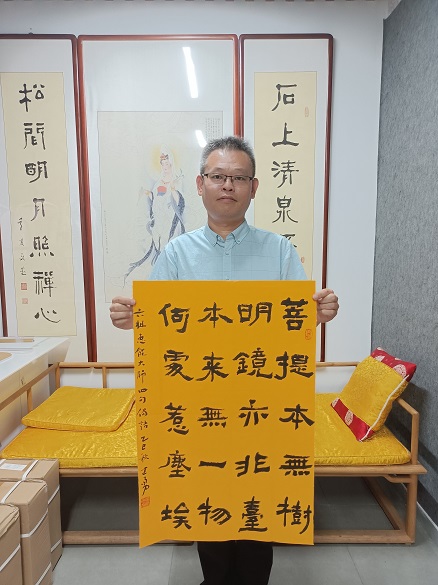 石上清泉
松間明月照禪心
菩提本無樹
明鏡亦非臺
本来無一物
何處惹塵埃
六祖惠能大師四句偈語 乙巳秋